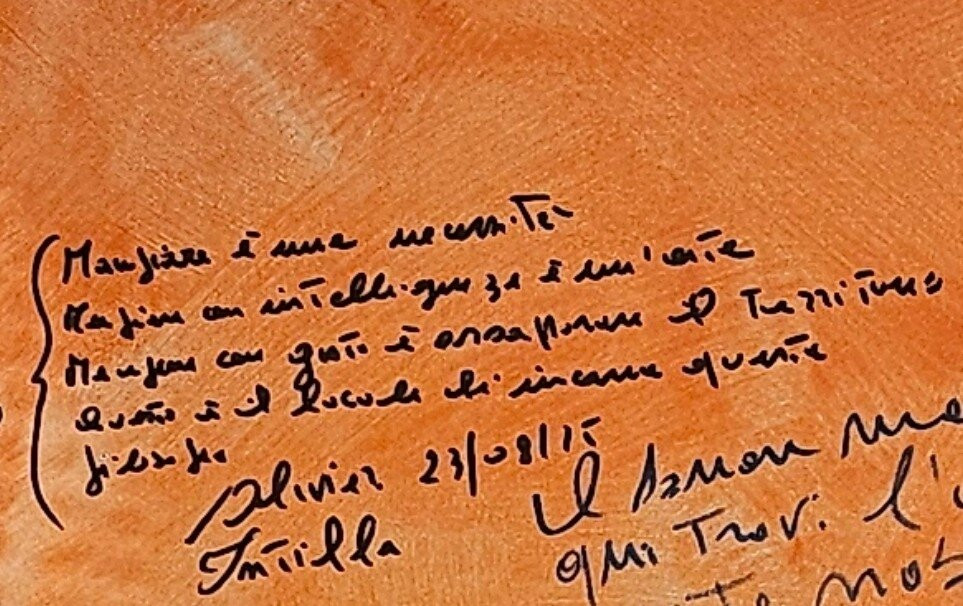 Mangiare è una necessità
Mangiare con intelligenza è un'arte
Mangiare con gusto è assaporare il territorio
Questo è il locale che incarna questa
filosofia
Olivier 23/08/15
Intilla
Il
qui trovi l'